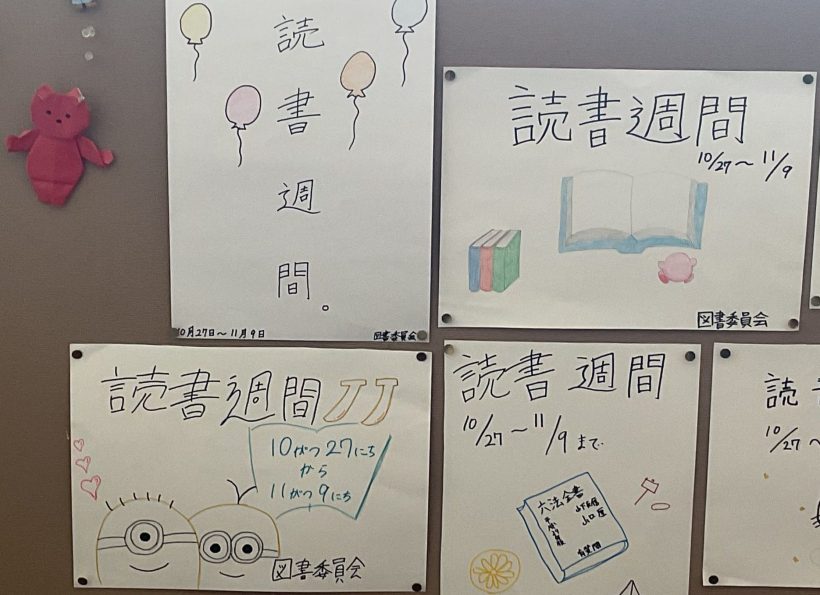 読書週間。
10月27日～11月9日
図書委員会
読書週間
10/27～11/9
図書委員会
読書週間
10がつ27にち
から
11がつ9にち
図書委員会
読書週間
10/27～11/9まで
六法全書
山口厚
有斐閣
読
10/27～